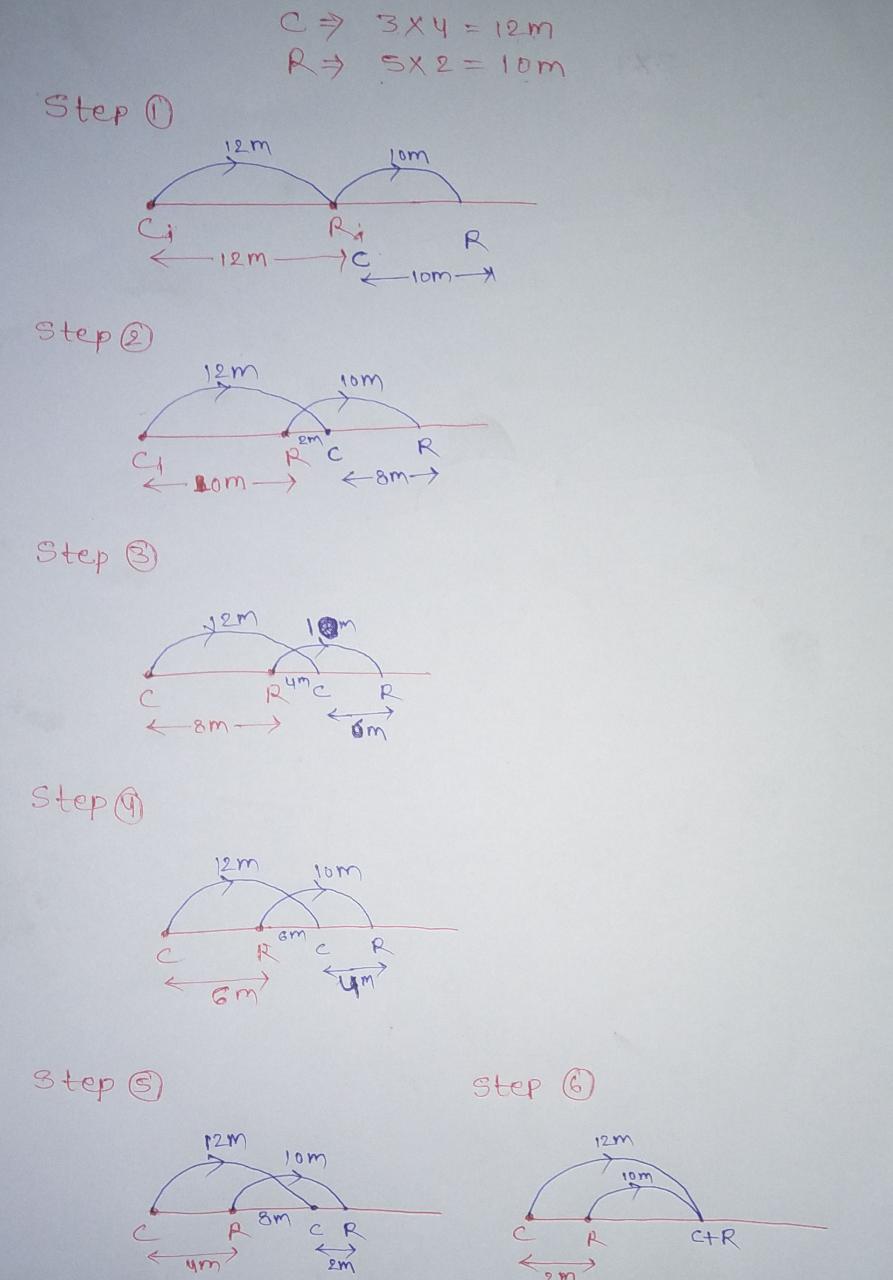 C ⇒ 3×4 = 12m
R ⇒ 5×2 = 10m
Step ①
12m 10m
Ci Ri R
12m C
10m
Step ②
12m 10m
2m
C1 R C R
10m 8m
Step ③
12m 10m
C R 4m C R
8m 6m
Step ④
12m 10m
6m
C R C R
6m 4m
Step ⑤ Step ⑥
12m 10m
8m
C R C R
4m 2m
12m
10m
C R C+R
2m